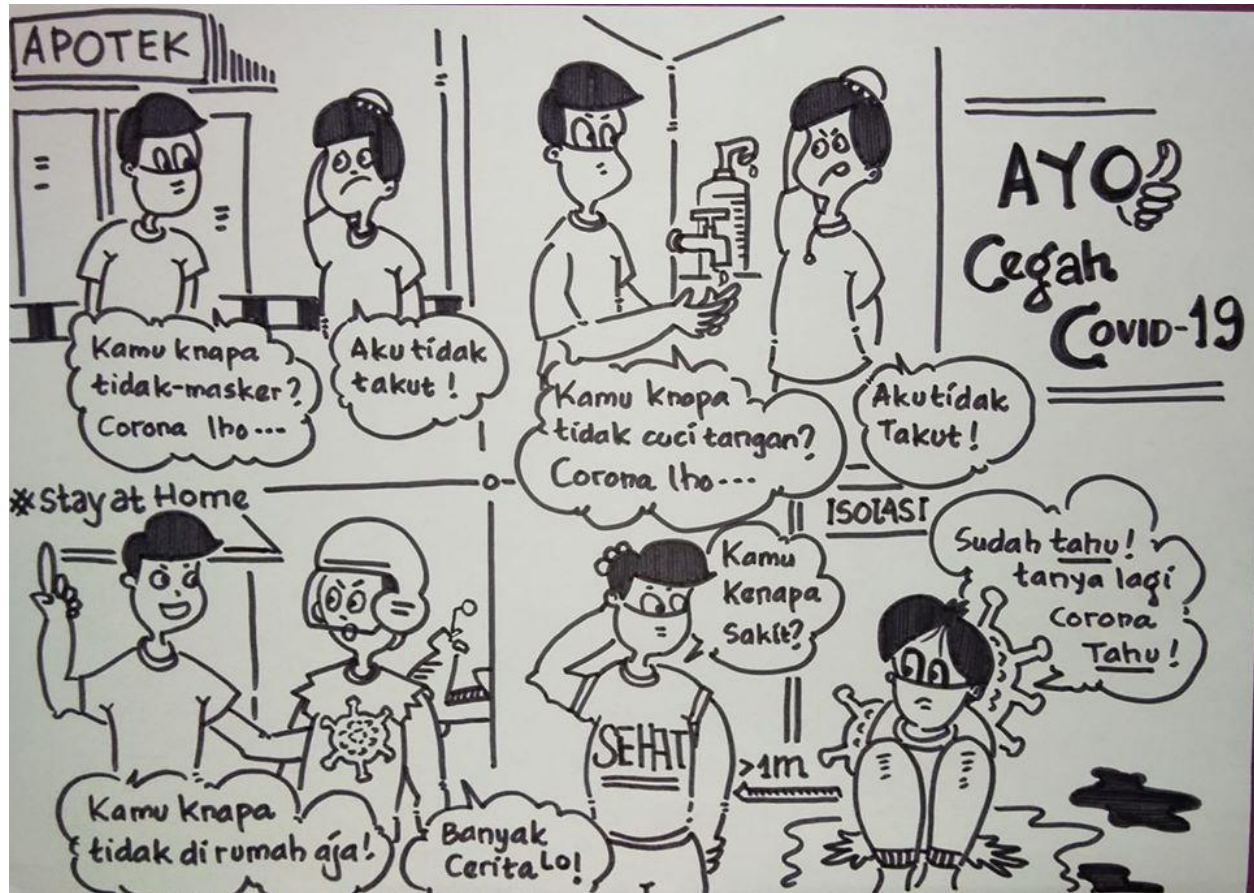 APOTEK
Kamu knapa
tidak-masker?
Corona lho---
Aku tidak
takut!
Kamu knapa
tidak cuci tangan?
Corona lho---
Aku tidak
Takut!
AYO
Cegah
COVID-19
*Stay at Home
Kamu knapa
tidak di rumah aja!
Banyak
Cerita Lo!
Kamu
Kenapa
Sakit?
SEHAT
>1m
ISOLASI
Sudah tahu!
tanya lagi
corona
Tahu!